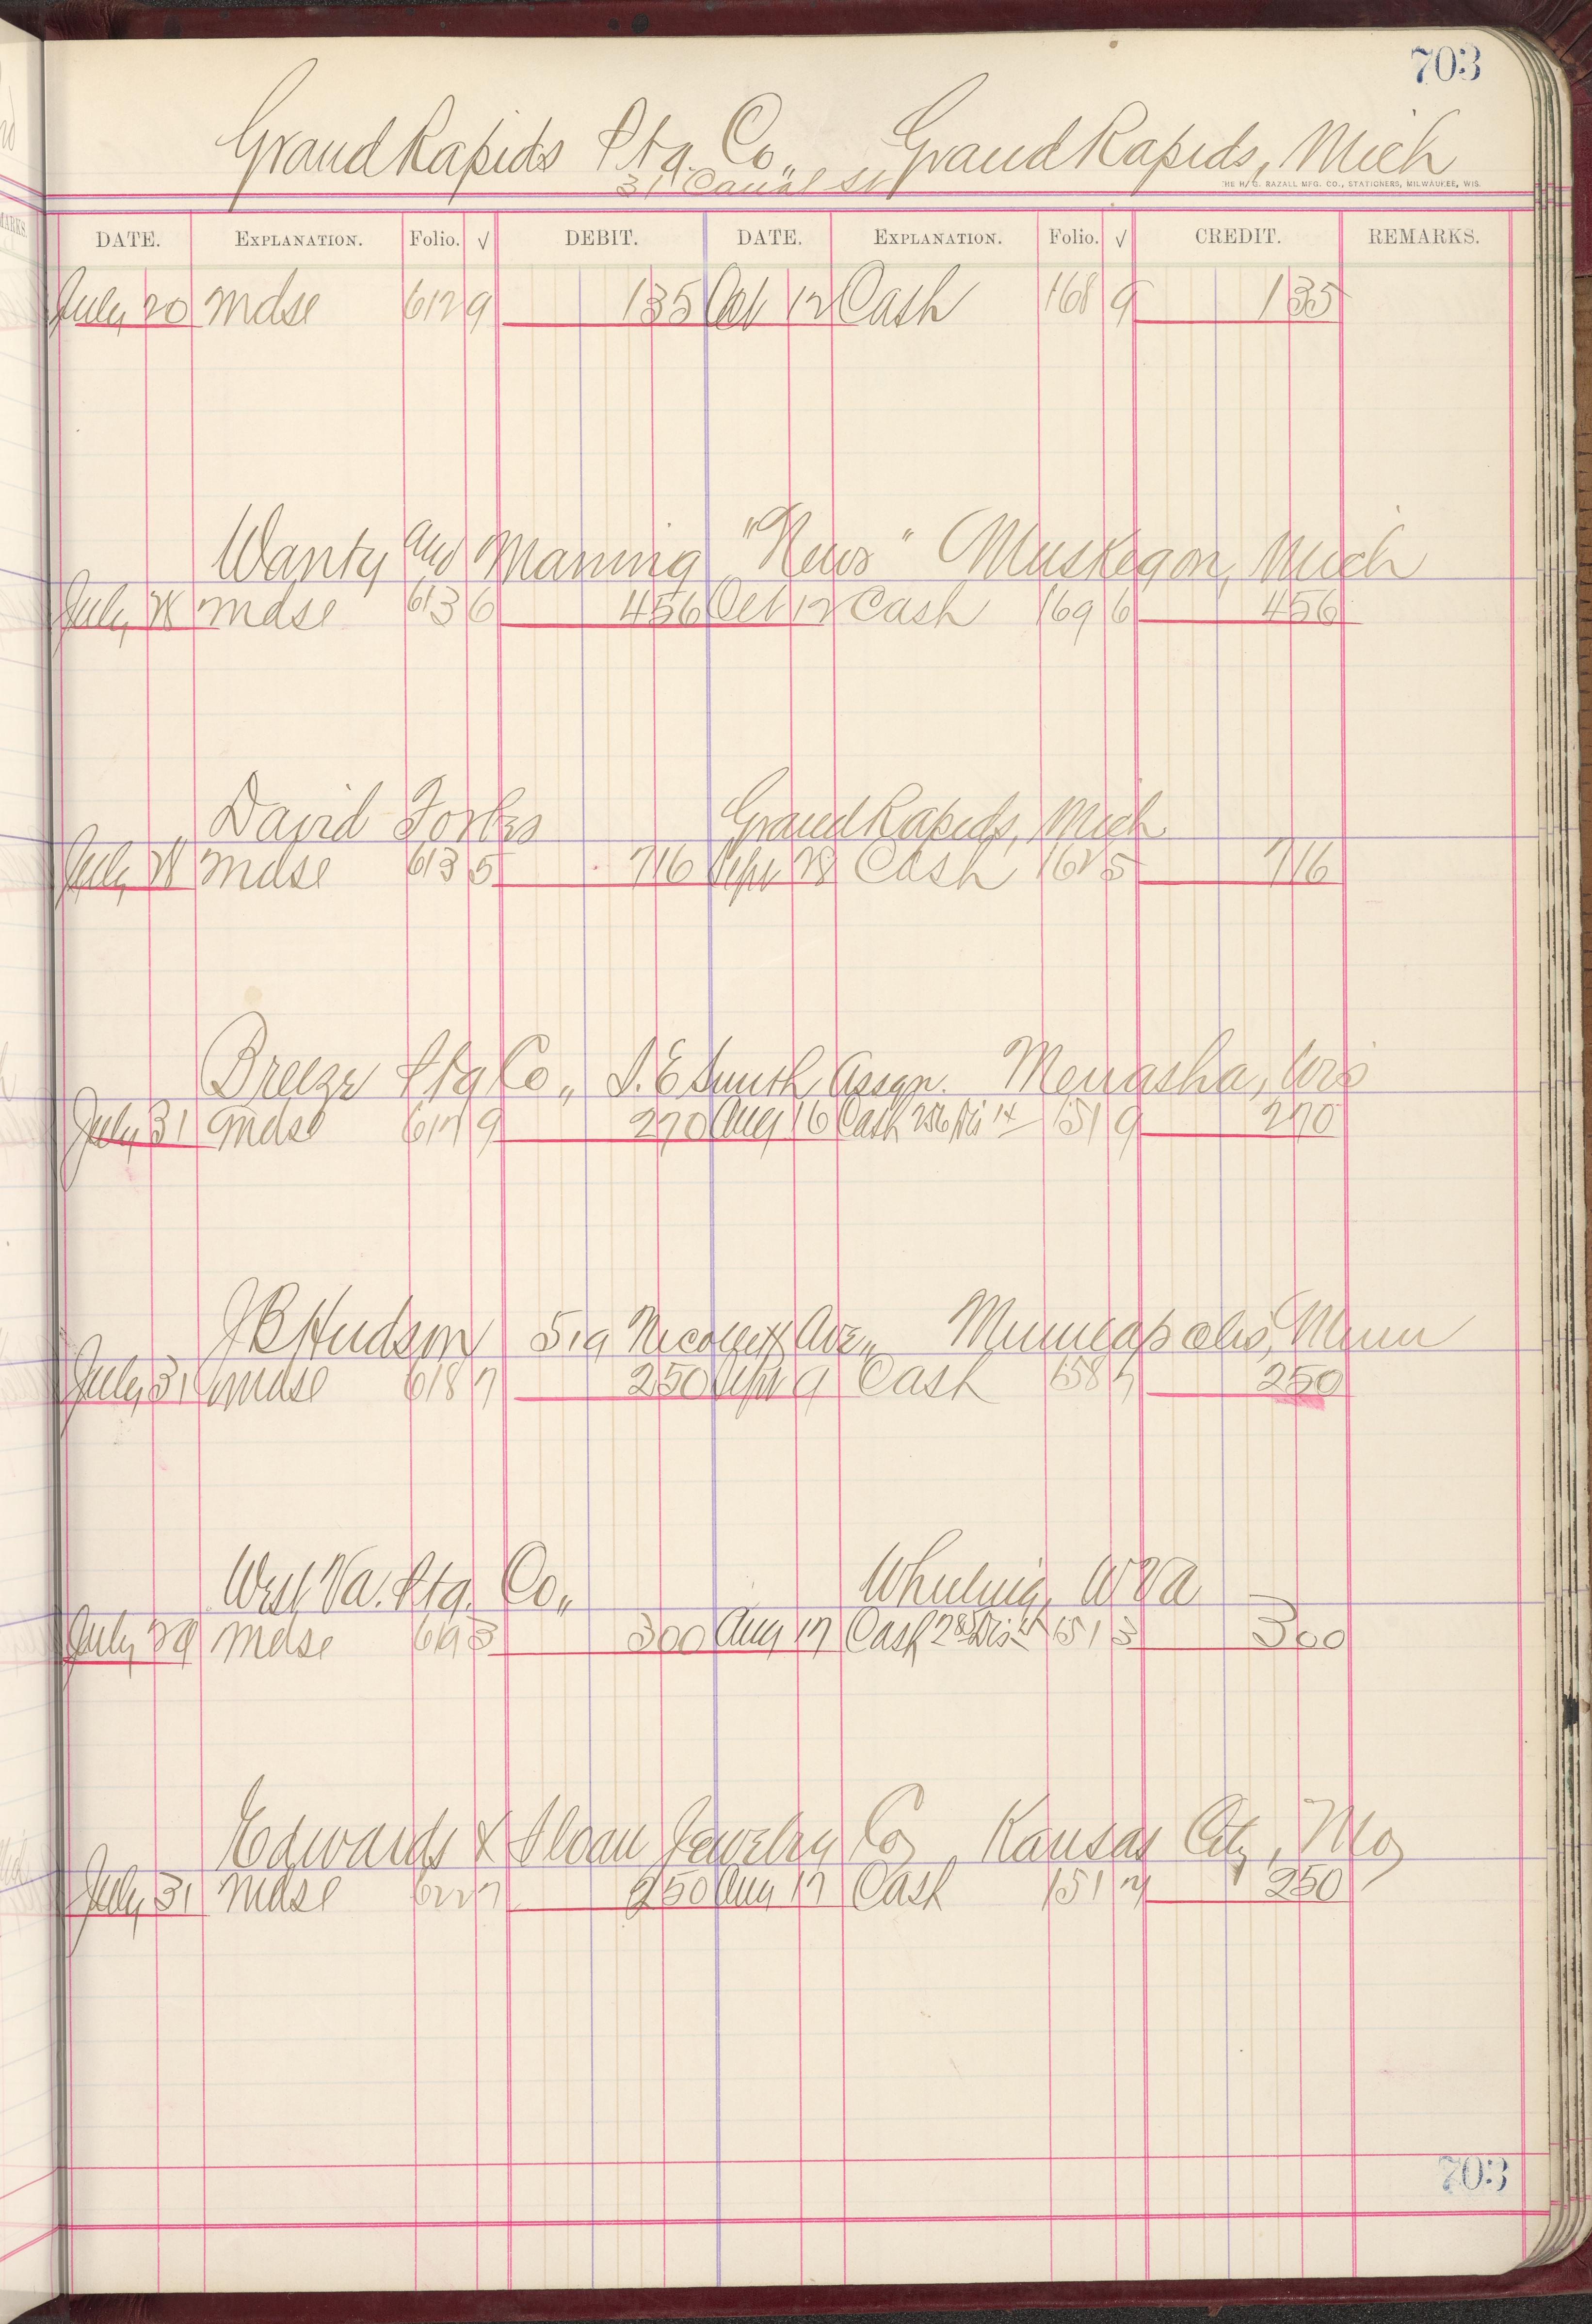 703
Grand Rapids Ptg. Co., Grand Rapids, Mich
31 Canal St
THE H. G. RAZALL MFG. CO., STATIONERS, MILWAUKEE, WIS.
DATE. EXPLANATION. Folio. √ DEBIT. DATE. EXPLANATION. Folio. √ CREDIT. REMARKS.
July 20 Mdse 612 9 135 Oct 12 Cash 168 9 135
Wanty and Manning "News" Muskegon, Mich
July Mdse 613 6 456 Oct 12 Cash 169 6 456
David Forbes Grand Rapids, Mich
July Mdse 613 5 716 Sept 28 Cash 162 5 716
Breeze Ptg Co., S. E Smith, Assgn. Menasha, Wis
July 31 Mdse 617 9 270 Aug 16 Cash 256 Dis 14 151 9 270
J B Hudson 519 Nicollett Ave., Minneapolis, Minn
July 31 Mdse 618 7 250 Sept 9 Cash 158 7 250
West Va. Ptg. Co., Wheeling, W Va
July 29 Mdse 619 3 300 Aug 17 Cash 285 Dis 15 151 3 300
Edwards & Sloan Jewelry Co, Kansas City, Mo,
July 31 Mdse 622 7 250 Aug 17 Cash 151 7 250
703